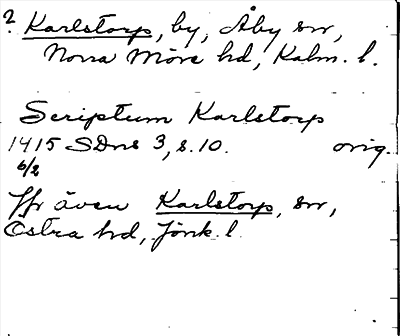 ? Karlstorp, by, Åby sn,
Norra Möre hd, Kalm. l.
Scriptum Karlstorp
1415 SDns 3, s. 10. orig.
6/2
Jfr även Karlstorp, sn,
Östra hd, Jönk. l.